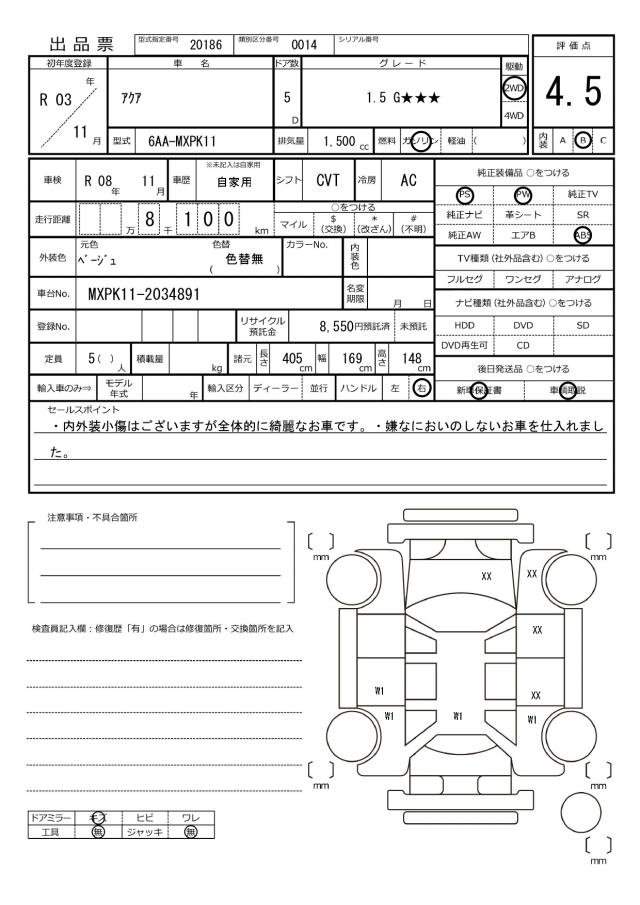 出品票
型式指定番号 20186 類別区分番号 0014 シリアル番号
評価点
4.5
内装 A B C
初年度登録 車名 ドア数 グレード 駆動
R 03 年 11 月
アクア 5 D 1.5 G★★★ 2WD 4WD
型式 6AA-MXPK11 排気量 1,500 cc 燃料 ガソリン 軽油 ( )
車検 R 08 年 11 月 車歴 ※未記入は自家用 自家用 シフト CVT 冷房 AC
走行距離 万 8 千 1 0 0 km
○をつける
マイル $ (交換) * (改ざん) # (不明)
外装色 元色 ベージュ 色替 色替無 ( ) カラーNo. 内装色
車台No. MXPK11-2034891 名変期限 月 日
登録No. リサイクル預託金 8,550円預託済 未預託
定員 5 ( ) 人 積載量 kg 諸元 長さ 405 cm 幅 169 cm 高さ 148 cm
輸入車のみ⇒ モデル年式 年 輸入区分 ディーラー 並行 ハンドル 左 右
純正装備品 ○をつける
PS PW 純正TV
純正ナビ 革シート SR
純正AW エアB ABS
TV種類 (社外品含む) ○をつける
フルセグ ワンセグ アナログ
ナビ種類 (社外品含む) ○をつける
HDD DVD SD
DVD再生可 CD
後日発送品 ○をつける
新車保証書 車輌取説
セールスポイント
・内外装小傷はございますが全体的に綺麗なお車です。・嫌なにおいのしないお車を仕入れまし
た。
注意事項・不具合箇所
検査員記入欄：修復歴「有」の場合は修復箇所・交換箇所を記入
ドアミラー キズ ヒビ ワレ
工具 無 ジャッキ 無
[ ] mm
[ ] mm
XX
XX
XX
W1
XX
W1
W1
W1
[ ] mm
[ ] mm
[ ] mm